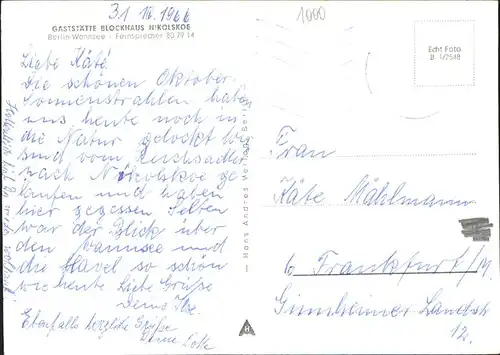 31
1966
1000
GASTSTÄTTE BLOCKHAUS NIKOLSKOE
Berlin-Wannsee · Fernsprecher 80 79 14
Echt Foto
Liebe Käte!
Die schönen Oktober-
Sonnenstrahlen haben
uns heute noch in
die Natur gelockt Wir
sind vom
nach Nikolskoe ge
laufen und haben
hier gegessen Selten
war der Blick über
den Wannsee und
die Havel so schön
wie heute Liebe Grüße
Deine
Ebenfalls herzliche Grüße
Deine Lotte
Hans Andres Verlag, Berlin
Frau
Käte Mählmann
6 Frankfurt/M.
Ginnheimer Landstr
12.